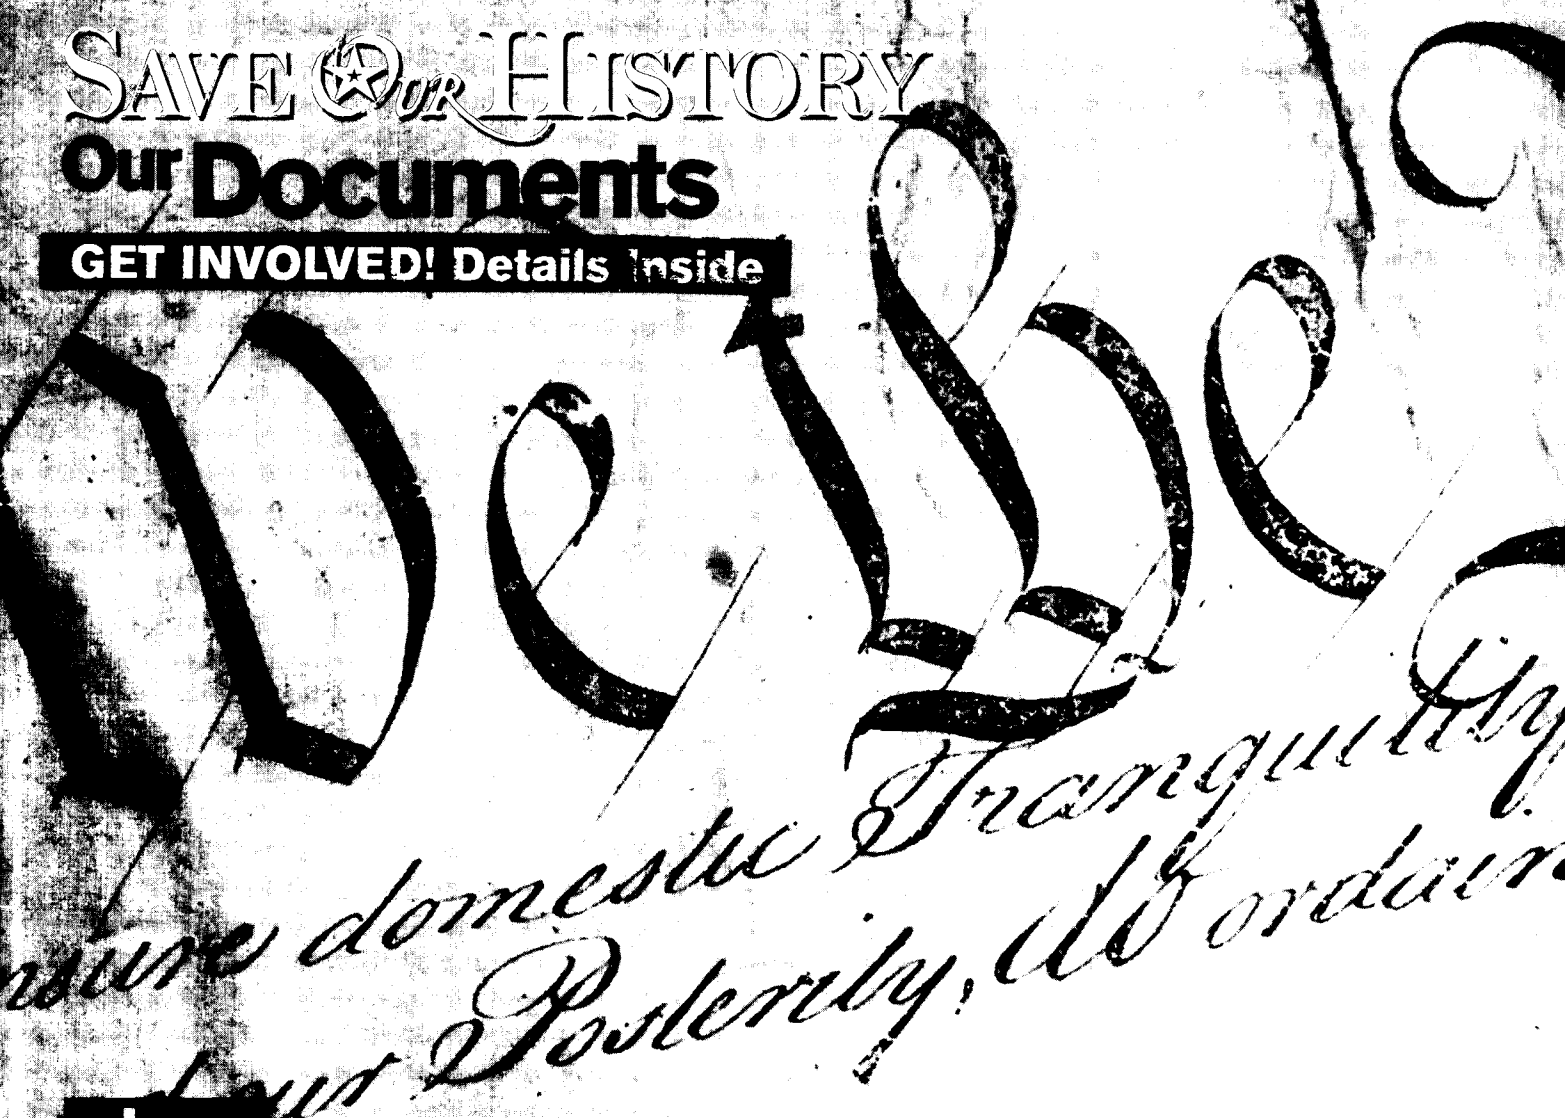 SAVE OUR HISTORY
Our Documents
GET INVOLVED! Details Inside
We the
nsure domestic Tranquility
our Posterity, do ordain